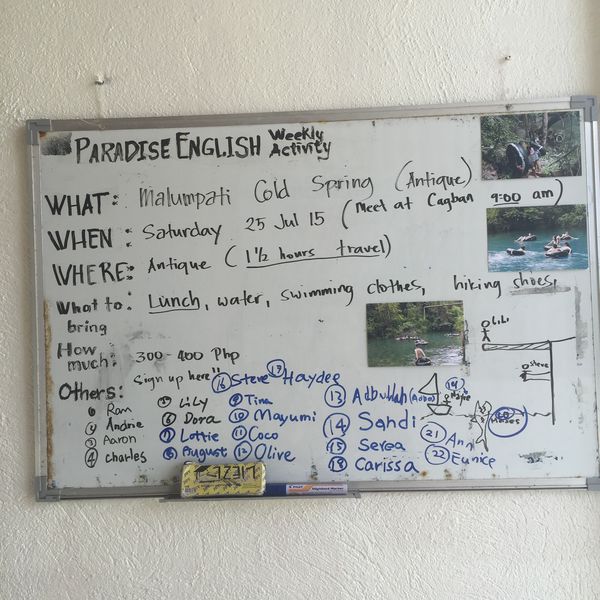 PARADISE ENGLISH Weekly Activity
WHAT: Malumpati Cold Spring (Antique)
WHEN: Saturday 25 Jul 15 (Meet at Cagban 9:00 am)
WHERE: Antique (1½ hours travel)
What to bring: Lunch, water, swimming clothes, hiking shoes,
How much: 300-400 Php
Others: Sign up here!!
① Ram
② Andrie
③ Aaron
④ Charles
⑤ Lily
⑥ Dora
⑦ Lottie
⑧ August
⑨ Tina
⑩ Mayumi
⑪ Coco
⑫ Olive
⑯ Steve
⑰ Haydee
⑬ Adbullah
⑭ Sandi
⑮ Serea
⑱ Carissa
⑲
⑳ Moses
㉑ Ann
㉒ Eunice
Steve